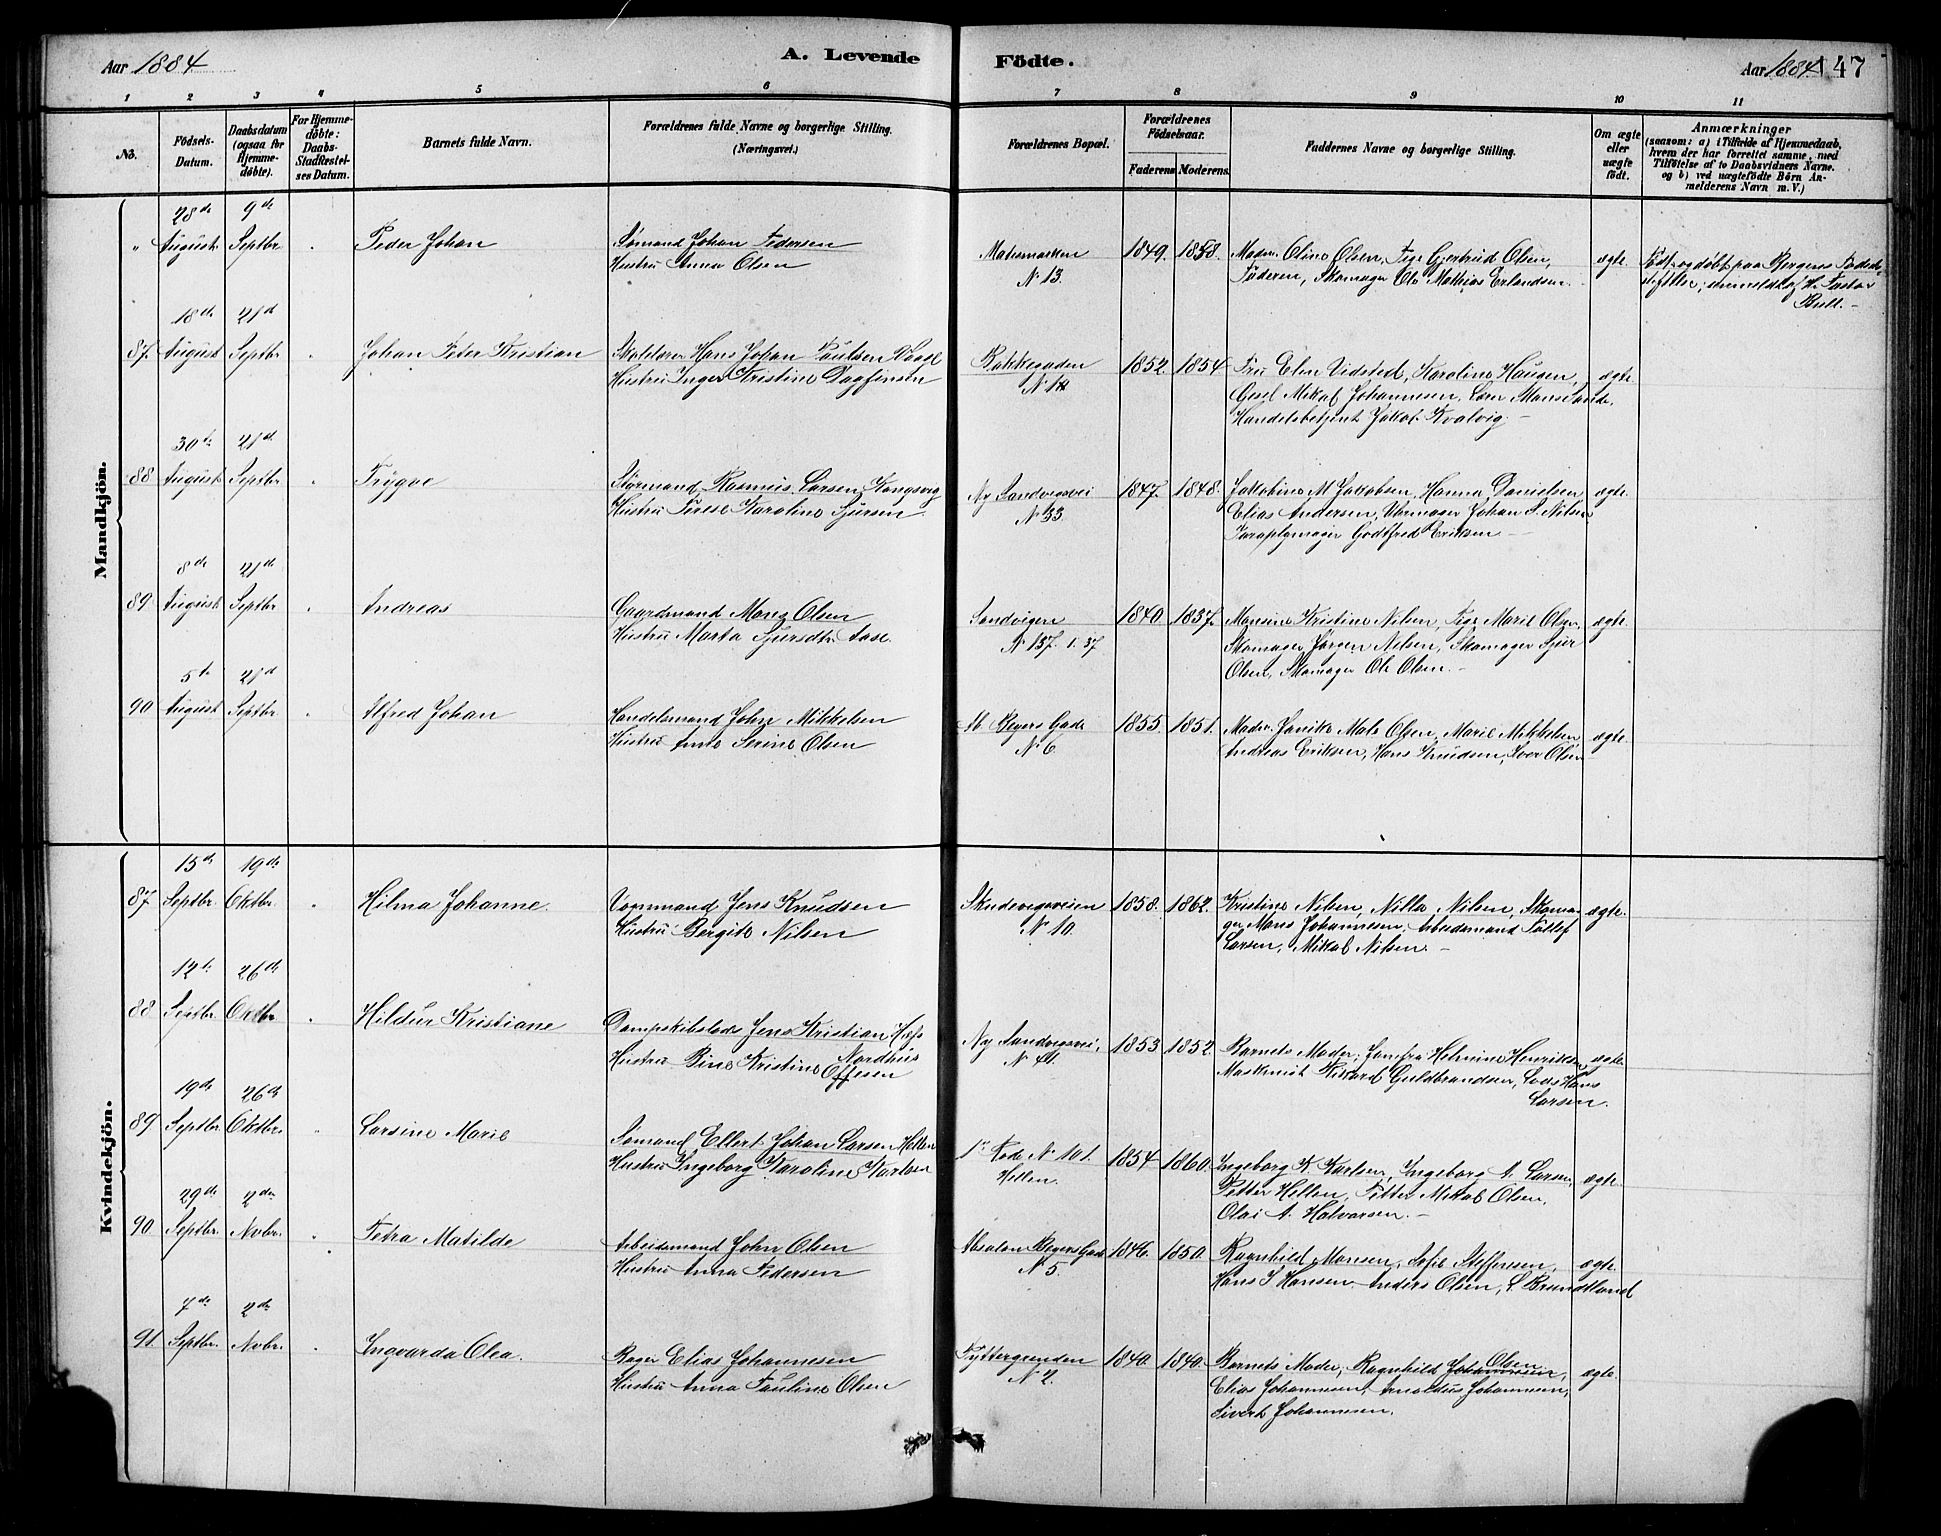 Aar 1884
A. Levende
Födte.
Aar 1884
47
1 2 3 4 5 6 7 8 9 10 11
No.
Födsels-Datum.
Daabsdatum (ogsaa for Hjemme-döbte).
For Hjemme-döbte: Daabs-Stadfæstel-ses Datum.
Barnets fulde Navn.
Forældrenes fulde Navne og borgerlige Stilling. (Næringsvei.)
Forældrenes Bopæl.
Forældrenes Födselsaar.
Faderens Moderens.
Faddernes Navne og borgerlige Stilling.
Om ægte eller uægte födt.
Anmærkninger
(saasom: a) i Tilfælde af Hjemmedaab, hvem der har forrettet samme, med Tilföielse af to Daabsvidners Navne. og b) ved uægtefödte Börn An-melderens Navn m. V.)
Mandkjön.
" 28de August 9de Septbr Peder Johan
Sömand Johan Pedersen
Hustru Anna Olsen
N 13.
1849. 1858.
Moder. Oline Olsen, Pige Gjertrud Olsen,
Faderen, Skomager Ole Mathias Erlandsen.
ægte.
Födt og döbt paa Bergens Födsels-
stiftelse; anmeldt af Hr. Pastor
Bull.
87. 18de August 21d Septbr Johan Peter Kristian
Hans Johan Paulsen
Hustru Inger Kristine Dagfinsen
N 18
1852. 1854
Fru Elen Vidsted, Karoline Hausen,
Gesel Mikal Johannesen,
Handelsbetjent Jakob Kvalvig.
ægte
88 30te August 21d Septbr Trygve
Styrmand Rasmus Larsen
Hustru Terese Karoline Sjursen
Ny Sandvigsvei
N 33.
1847. 1848.
Jakobine M Jakobsen, Hanna Danielsen
Elias Andersen, Urmager Johan S. Nilsen
Paraplymager Godtfred Eriksen
ægte.
89 8de August 21de Septbr Andreas
Gaardmand Mons Olsen
Hustru Marta Sjursdtr Aase.
Sandvigen
N 137. 1. 37
1840. 1837.
Monsine Kristine Nilsen, Pige Marie Olsen,
Skomager Jørgen Nilsen, Skomager Sjur
Olsen, Skomager Ole Olsen.
ægte.
90 5te August 21d Septbr Alfred Johan
Handelsmand John Mikkelsen
Hustru Anne Serine Olsen
Ab. Beyers Gade
N 6.
1855. 1851.
Moder. Janike Male Olsen, Marie Mikkelsen
Andreas Eriksen, Hans Knudsen, Iver Olsen
ægte.
Kvindekjön.
87 15de Septbr. 19de Oktbr. Hilma Johanne.
Vognmand Jens Knudsen
Hustru Bergite Nilsen
Skudevigsveien
N 10.
1858. 1862.
Kristine Nilsen, Nilla Nilsen, Skoma-
ger Mons Johannesen, Arbeidsmand Tollef
Larsen, Mikal Nilsen.
ægte.
88 12te Septbr. 26de Oktbr. Hildur Kristiane
Dampskibslods Jens Kristian
Nordhus
Hustru Kristine Offesen
Ny Sandvigsvei,
N 41.
1853 1852.
Barnets Moder, Jomfru Helmine Henriksen
Maskinist Rikard Guldbrandsen, Lods Hans
Larsen.
ægte.
89 19de Septbr. 26de Oktbr. Larsine Marie
Sömand Ellert Johan Larsen Hellen
Hustru Ingeborg Karoline Karlsen
1ste Rode N 101.
Hellen.
1854 1860.
Ingeborg K. Karlsen, Ingeborg A. Larsen,
Petter Hellen, Petter Mikal Olsen,
Olai A. Halvorsen.
ægte.
90 29de Septbr. 2den Novbr. Petra Matilde
Arbeidsmand John Olsen
Hustru Anna Pedersen
Absalon Beyers Gade
N 5.
1846. 1850.
Ragnhild Monsen, Sofie Steffensen,
Hans J Hansen. Anders Olsen, L. Brundtland
ægte.
91 7de Septbr. 2de Novbr. Ingvarda Olea.
Bager Elias Johannesen
Hustru Anna Pauline Olsen
Pyttergrenden
N 2.
1840. 1840.
Barnets Moder, Ragnhild Johannesen Olsen,
Elias Johannesen, Arnoldus Johannesen,
Sivert Johannesen.
ægte.